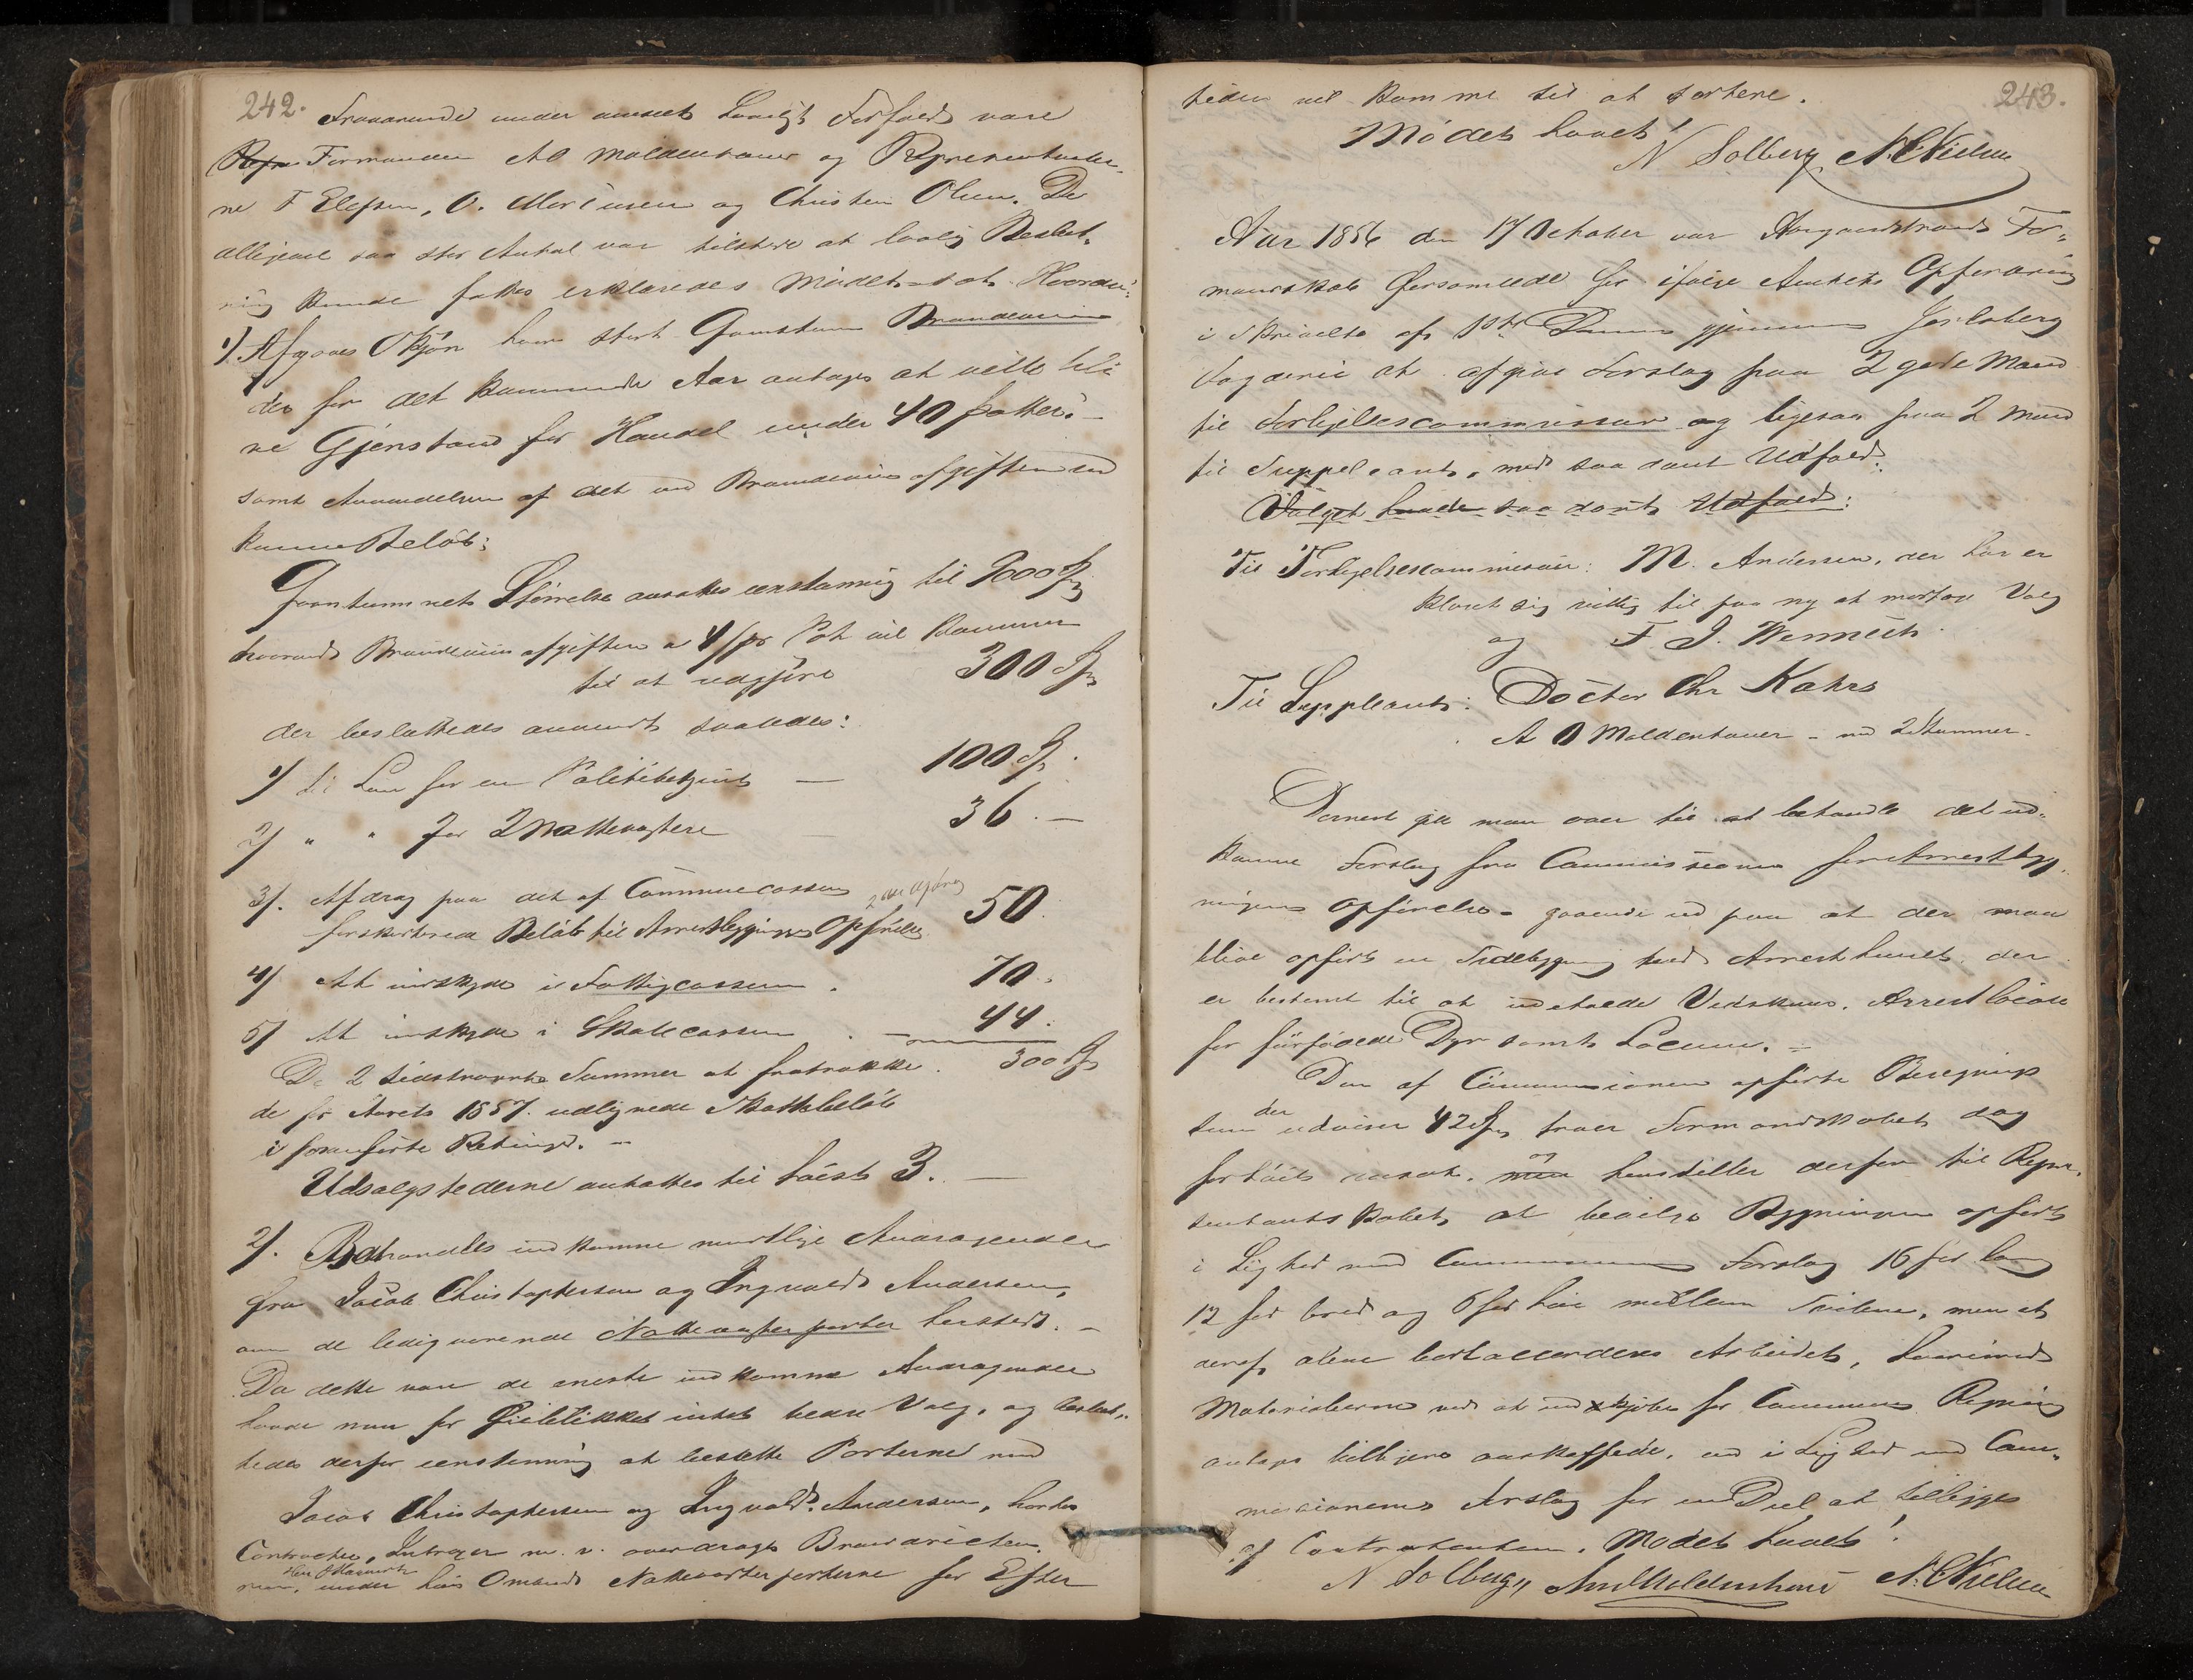 242.
Fraværende under anmeldt Lovligt Forfald vare
Formanden A O Moldenhauer og Repræsentanter-
ne F Elefsen, O. Mortensen og Christen Olsen. Da
alligevel saa stor Antal var tilstede at lovlig Beslut-
ning kunde fattes erklæredes Mødet sat. Hvorda:
1). Afgaves Skjøn hvor stort Qvantum Brændeviin
der for det kommende Aar antages at ville blive
Gjenstand for Handel under 40 Potter,
samt Anvendelsen af det ved Brændeviinsafgiften ind
komne Beløb:
Qvantummets Størrelse ansattes eenstemmig til 9000 P
hvorved Brændeviinsafgiften a 4 s pr Pot vil komme
til at udgjøre 300 Spd
der besluttedes anvendt saaledes:
1) til Løn for en Politibetjent — 100 Spd.
2) " " for 2 Nattevægtere 36. —
3). Afdrag paa det af Communecassen
forskutterede Beløb til Arrestbygningens Opførelse 50.
4) At indskyde i Fattigcassen . 70.
5) At indskyde i Skolecassen . — 44.
De 2 sidstnævnte Summer at fratrække . 300 Spd
de for Aaret 1857 udlignede Skattebeløb
i foranførte Retning. —
Udsalgstederne antattes til høist 3. —
2). Behandles indkomne mundtlige Andragender
fra Jacob Christophersen og Ingvald Andersen,
om de ledigværende Nattevægterposter hersteds. —
Da dette vare de eneste indkomne Andragender
havde man for Øieblikket intet bedre Valg, og beslut-
tedes derfor eenstemmig at besætte Posterne med
Jacob Christophersen og Ingvald Andersen, hvortes
Contracter, m. v. overdrages
under hans Nattevægterposterne for Efter
243.
tiden vil komme til at sortere.
Mødet hævet!
N Solberg N. C Nielsen
Aar 1856 den 17 October var Aasgaardstrands For-
mandskab forsamlede for ifølge Amtets Opfordring
i Skrivelse af 10de Dennes gjennem Jarlsberg
Fogderie at afgive Forslag paa 2 gode Mænd
til Forligelsescommissær og ligesaa paa 2 Mænd
til Suppleant, med saadant Udfald:
Valget havde saadant Udfald:
Til Forligelsescommissær: M. Andersen, der har er
klæret sig villig til paa ny at modtage Valg
og F. J. Wennich
Til Suppleant: Doctor Chr Kahrs
A O Moldenhauer – med 2 Stemmer.
Dernæst gik man over til at behandle det ind-
komne Forslag fra Commissionen for Arrestbyg-
ningens Opførelse – gaaende ud paa at der maa
blive opført en Sidebygning ved Arresthuset, der
er bestemt til at indeholde Vedskuur, Arrestlocale
for Dyr samt Locum. –
Den af Commissionen opførte Beregning
som der udviser 42 Spd troer Formandskabet dog
for høit ansat, og henstiller derfor til Repræ-
sentantskabet at bevilge Bygningen opført
i Lighed med Commissionens Forslag 16 fod lang
12 fod bred og 6 fod høi mellem Svilene, men at
deraf alene bortaccorderes Arbeidet, hvorimod
Materialierne ved at indkjøbes for Communens Regning
antages billigere anskaffede, end i Lighed med Com-
missionens Forslag for en Deel at tillægges
af Contrahenten. Mødet hævet!
N Solberg, Moldenhauer N. C Nielsen